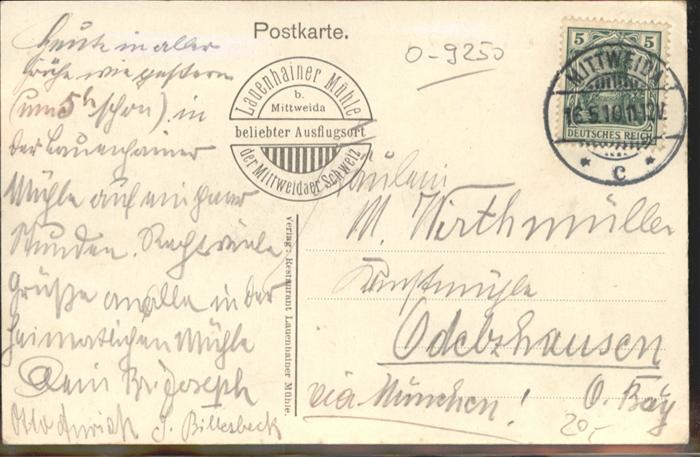 Postkarte.
0-9250
Lauenhainer Mühle
b.
Mittweida
beliebter Ausflugsort
der Mittweidaer Schweiz
5 5
DEUTSCHES REICH
MITTWEIDA
16.5.10.11-12V.
* c *
heute in aller
Frühe wie gestern
(um 5h schon) in
der Lauenhainer
Mühle auf ein paar
Stunden. Recht viele
Grüße an alle in der
heimatlichen Mühle
Dein Br. Joseph
Otto J. Billesbeck
Verlag: Restaurant Lauenhainer Mühle.
Fräulein
M. Wirthmüller
Kunstmühle
Odelzhausen
via München! O. Bay
20,-